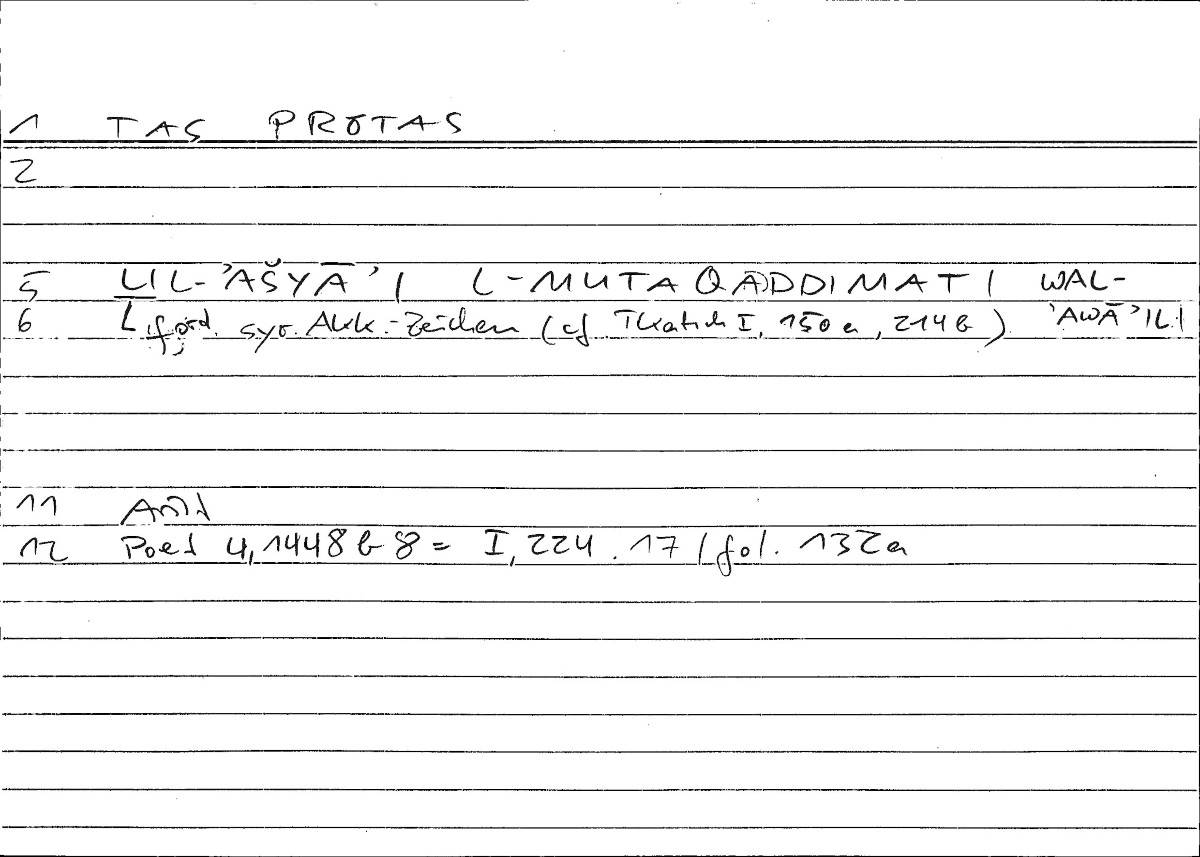 1 TAS PRŌTAS
2
5 LIL-'AŠYĀ'I L-MUTAQADDIMATI WAL-
6 L syr. Akk.-Zeichen (cf Tkatsch I, 150 a, 214 b). 'AWĀ'ILI
11 Arist
12 Poet 4,1448 b 8 = I, 224.17 / fol. 132a